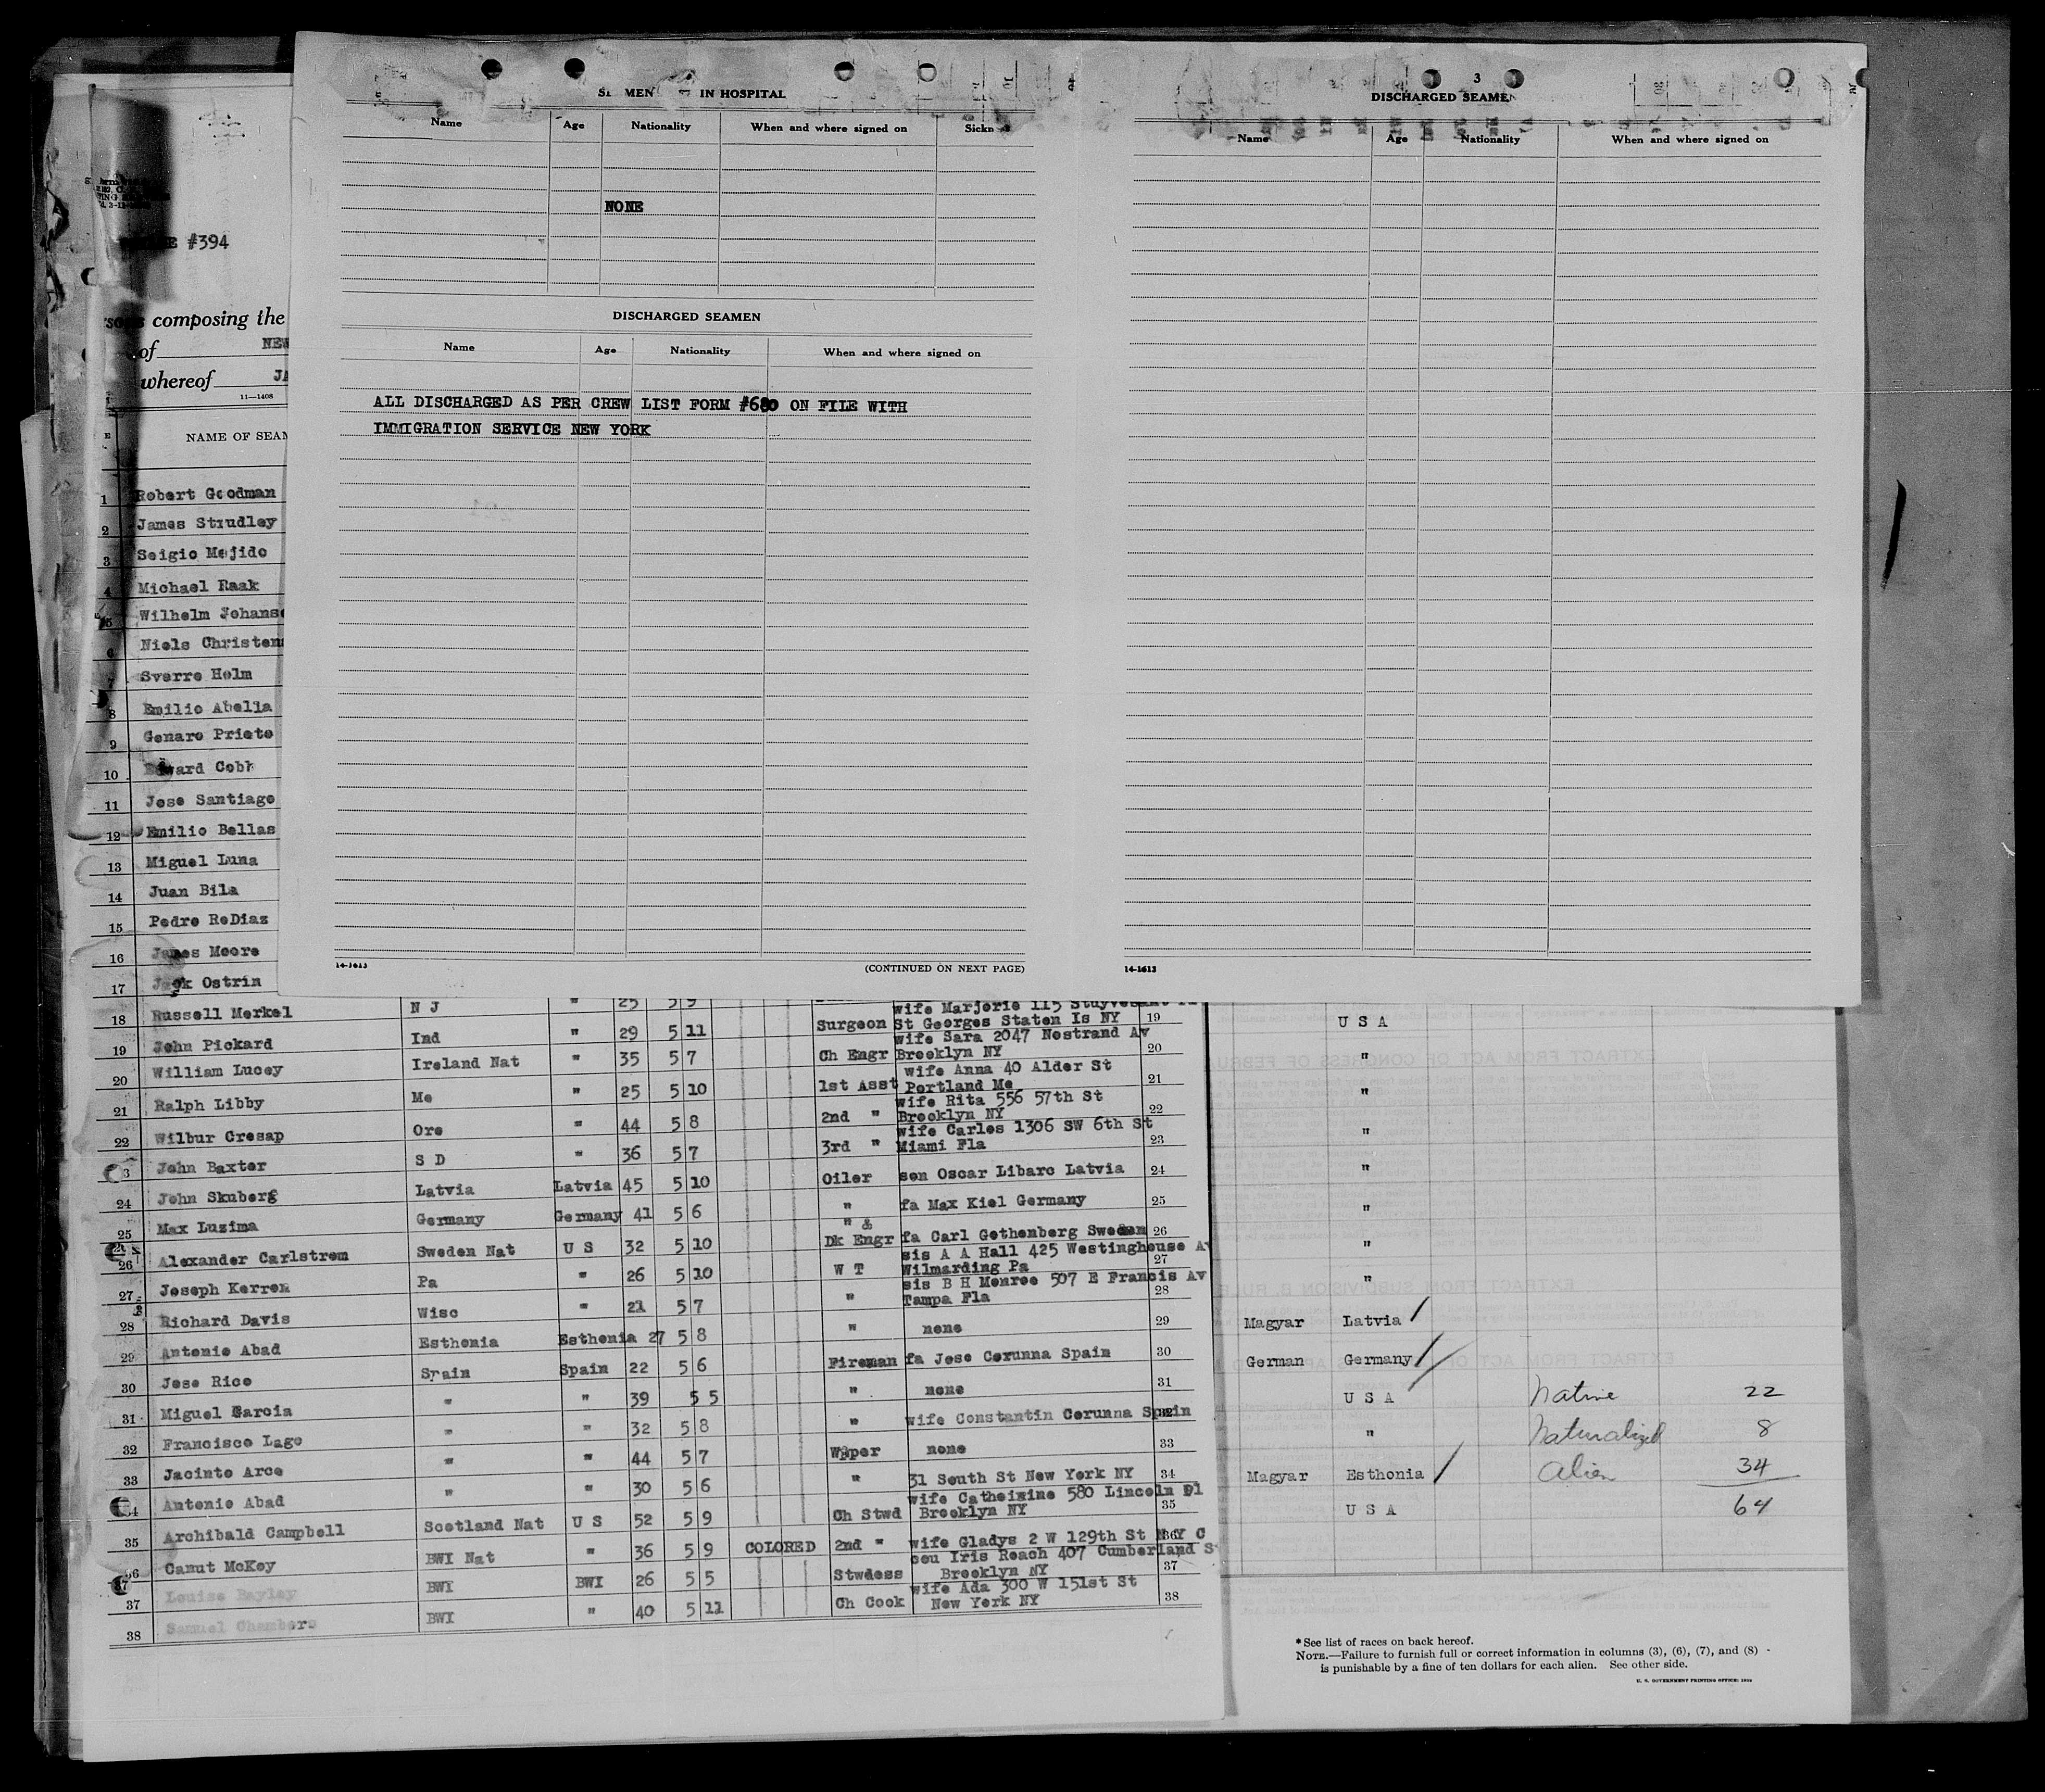 SEAMEN IN HOSPITAL
Name Age Nationality When and where signed on
NONE
DISCHARGED SEAMEN
Name Age Nationality When and where signed on
ALL DISCHARGED AS PER CREW LIST FORM #680 ON FILE WITH
IMMIGRATION SERVICE NEW YORK
14-1613 (CONTINUED ON NEXT PAGE)
3
DISCHARGED SEAMEN
Name Age Nationality When and where signed on
14-1613
#394
composing the
of NEW
whereof JA
11—1408
NAME OF SEAM
1 Robert Goodman
2 James Strudley
3 Seigio Mejido
4 Michael Raak
5 Wilhelm Johanse
6 Niels Christens
7 Sverre Holm
8 Emilio Abelja
9 Genaro Prieto
10 Edward Cobh
11 Jose Santiago
12 Emilio Bellas
13 Miguel Luna
14 Juan Bila
15 Pedro ReDiaz
16 James Moore
17 Jack Ostrin
18 Russell Merkel N J " 25 5 9 wife Marjorie 115 Stuyvesant
19 John Pickard Ind " 29 5 11 Surgeon St Georges Staten Is NY 19
wife Sara 2047 Nostrand Av
20 William Lucey Ireland Nat " 35 5 7 Ch Engr Brooklyn NY 20
wife Anna 40 Alder St
21 Ralph Libby Me " 25 5 10 1st Asst Portland Me 21
wife Rita 556 57th St
22 Wilbur Cresap Ore " 44 5 8 2nd " Brooklyn NY 22
wife Carles 1306 SW 6th St
3 John Baxter S D " 36 5 7 3rd " Miami Fla 23
24 John Skuberg Latvia Latvia 45 5 10 Oiler son Oscar Libarc Latvia 24
25 Max Luzima Germany Germany 41 5 6 " fa Max Kiel Germany 25
" &
26 Alexander Carlstrom Sweden Nat U S 32 5 10 Dk Engr fa Carl Gothenberg Sweden 26
sis A A Hall 425 Westinghouse Av
27 Joseph Kerren Pa " 26 5 10 W T Wilmarding Pa 27
sis B H Monroe 507 E Francis Av
28 Richard Davis Wisc " 21 5 7 " Tampa Fla 28
29 Antonio Abad Esthonia Esthonia 27 5 8 " none 29
30 Jose Rico Spain Spain 22 5 6 Fireman fa Jose Corunna Spain 30
31 Miguel Garcia " " 39 5 5 " none 31
32 Francisco Lago " " 32 5 8 " wife Constantin Corunna Spain 32
33 Jacinto Arce " " 44 5 7 Wiper none 33
34 Antonio Abad " " 30 5 6 " 31 South St New York NY 34
wife Catheirine 580 Lincoln Pl
35 Archibald Campbell Scotland Nat U S 52 5 9 Ch Stwd Brooklyn NY 35
36 Canut McKoy BWI Nat " 36 5 9 COLORED 2nd " wife Gladys 2 W 129th St N Y C 36
cou Iris Roach 407 Cumberland S
37 Louise Bayley BWI BWI 26 5 5 Stwdess Brooklyn NY 37
wife Ada 300 W 151st St
38 Samuel Chambers BWI " 40 5 11 Ch Cook New York NY 38
U S A
"
"
"
"
"
"
"
Magyar Latvia
German Germany
U S A Native 22
" Naturalized 8
Magyar Esthonia Alien 34
U S A 64
EXTRACT FROM ACT OF CONGRESS OF FEBRU
EXTRACT FROM SUBDIVISION B, RULE
EXTRACT FROM ACT OF
*See list of races on back hereof.
NOTE.—Failure to furnish full or correct information in columns (3), (6), (7), and (8)
is punishable by a fine of ten dollars for each alien. See other side.
U. S. GOVERNMENT PRINTING OFFICE: